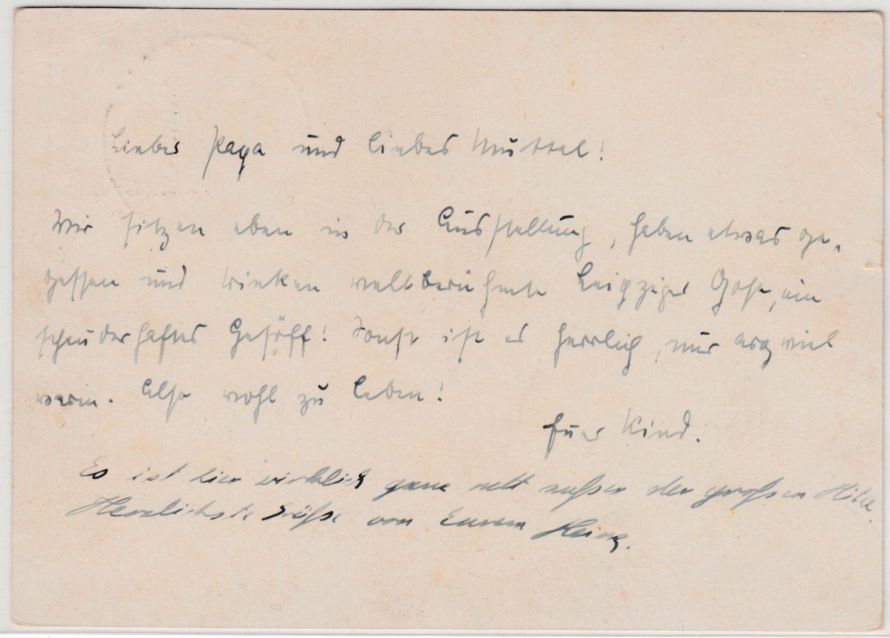 Liebes Papa und liebes Muttel!
Wir sitzen eben in der Ausstellung, haben etwas ge-
gessen und trinken weltberühmte Leipziger Gose, ein
schauderhaftes Gesöff! Sonst ist es herrlich, nur arg viel
warm. Also wohl zu leben!
Euer Kind.
Es ist hier wirklich ganz nett außer der großen Hitze.
Herzlichste Grüße von Eurem Heinz.